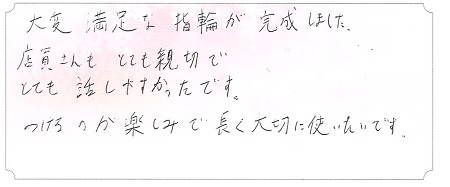 大変 満足な 指輪が 完成しました。
店員さんも とても親切で
とても 話しやすかったです。
つけるのが楽しみで長く大切に使いたいです。